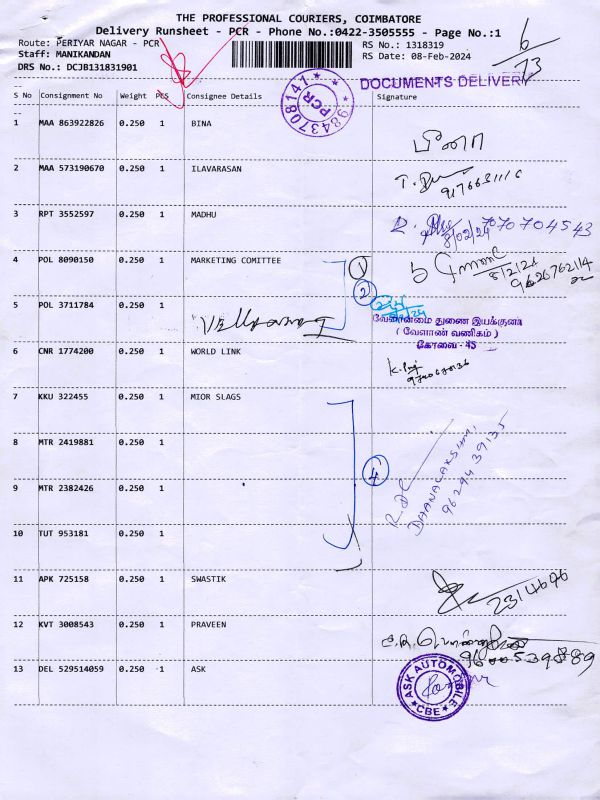 THE PROFESSIONAL COURIERS, COIMBATORE
Delivery Runsheet - PCR - Phone No.:0422-3505555 - Page No.:1
Route: PERIYAR NAGAR - PCR
RS No.: 1318319
Staff: MANIKANDAN
RS Date: 08-Feb-2024
DRS No.: DCJB131831901
6/73
9843708141
PCR
DOCUMENTS DELIVERY
S No Consignment No Weight PCS Consignee Details Signature
1 MAA 863922826 0.250 1 BINA
பீனா
2 MAA 573190670 0.250 1 ILAVARASAN
3 RPT 3552597 0.250 1 MADHU
8/02/24 7070704543
4 POL 8090150 0.250 1 MARKETING COMITTEE
1
8/2/24
2
5 POL 3711784 0.250 1
வேளாண்மை துணை இயக்குனர்
( வேளாண் வணிகம் )
கோவை - 45
6 CNR 1774200 0.250 1 WORLD LINK
7 KKU 322455 0.250 1 MIOR SLAGS
8 MTR 2419881 0.250 1
4
DHANALAKSHMI,
9629439135
9 MTR 2382426 0.250 1
10 TUT 953181 0.250 1
11 APK 725158 0.250 1 SWASTIK
2314676
12 KVT 3008543 0.250 1 PRAVEEN
9600539889
13 DEL 529514059 0.250 1 ASK
ASK AUTOMOBILE
CBE